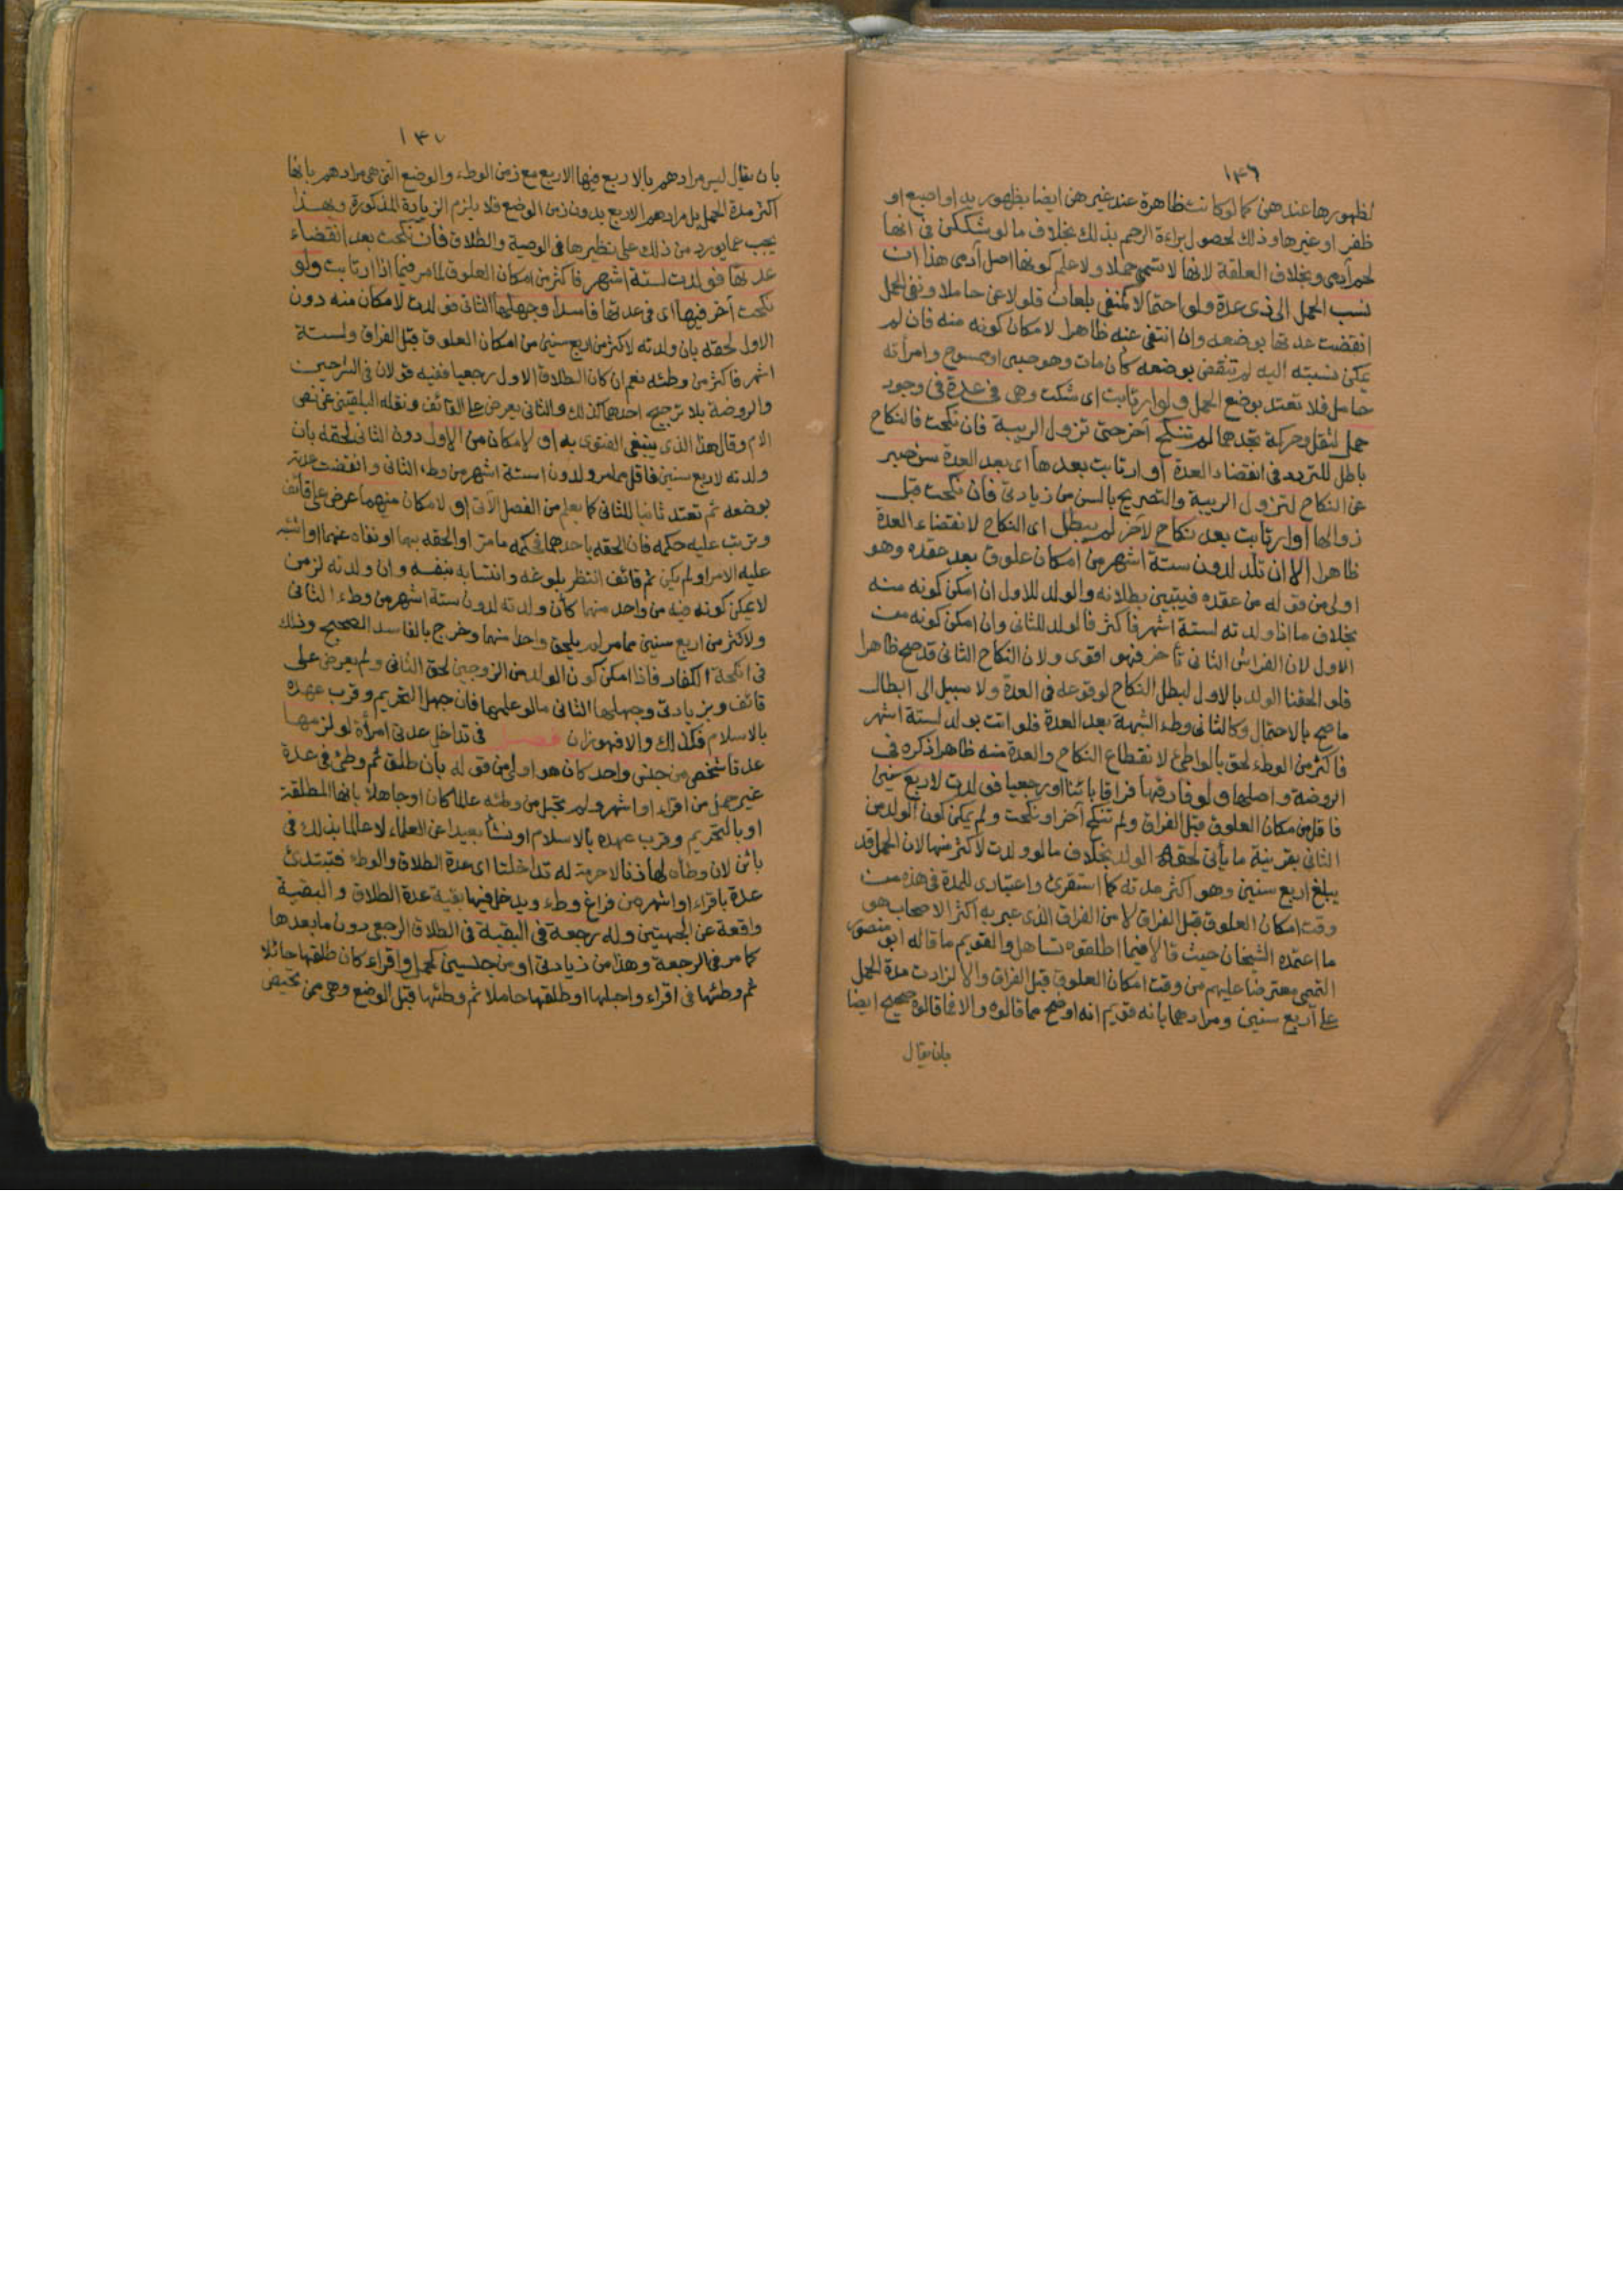 ١٣٦
لظهورها عندهن كما لو كانت ظاهرة عند غيرهن ايضا بظهور يد او اصبع او
ظفر او غيرها وذلك لحصول براءة الرحم بذلك بخلاف ما لو شككن في انها
لحم آدمي وبخلاف العلقة لانها لا تسمى حملا ولا علم كونها اصل آدمي هذا ان
نسب الحمل الى ذي عدة ولو احتمالا كمنفي بلعان فلو لاعن حاملا ونفى الحمل
انقضت عدتها بوضعه وان انتفى عنه ظاهرا لامكان كونه منه فان لم
يمكن نسبته اليه لم تنقض بوضعه كأن مات وهو صبي او ممسوح وامرأته
حامل فلا تعتد بوضع الحمل ولو ارتابت اى شكت وهي في عدة في وجود
حمل لثقل وحركة تجدهما لم تنكح آخر حتى تزول الريبة فان نكحت فالنكاح
باطل للتردد في انقضاء العدة او ارتابت بعدها اى بعد العدة سن صبر
عن النكاح لتزول الريبة والتصريح بالسن من زيادتي فان نكحت قبل
زوالها او ارتابت بعد نكاح لآخر لم يبطل اى النكاح لانقضاء العدة
ظاهرا الا ان تلد لدون ستة اشهر من امكان علوق بعد عقده وهو
اولى من قوله من عقده فيتبين بطلانه والولد للاول ان امكن كونه منه
بخلاف ما اذا ولدته لستة اشهر فأكثر فالولد للثاني وان امكن كونه من
الاول لان الفراش الثاني تأخر فهو اقوى ولان النكاح الثاني قد صح ظاهرا
فلو الحقنا الولد بالاول لبطل النكاح لوقوعه في العدة ولا سبيل الى ابطال
ما صح بالاحتمال وكالثاني وطء الشبهة بعد العدة فلو اتت بولد لستة اشهر
فاكثر من الوطء لحق بالواطئ لانقطاع النكاح والعدة منه ظاهرا ذكره في
الروضة واصلها ولو فارقها فراقا بائنا او رجعيا فولدت لاربع سنين
فاقل من مكان العلوق قبل الفراق ولم تنكح آخر او نكحت ولم يمكن كون الولد من
الثاني بقرينة ما يأتي لحقه الولد بخلاف ما لو ولدت لأكثر منها لان الحمل قد
يبلغ اربع سنين وهو اكثر مدته كما استقرئ واعتباري للمدة في هذه من
وقت امكان العلوق قبل الفراق لا من الفراق الذي عبر به اكثر الاصحاب هو
ما اعتمده الشيخان حيث قالا فيما اطلقوه تساهل والقويم ما قاله ابو منصور
التميمي معترضا عليهم من وقت امكان العلوق قبل الفراق والا لزادت مدة الحمل
على أربع سنين ومرادهما بانه قويم انه اوضح مما قالوه والا فما قالوه صحيح ايضا
بان يقال
١٣٧
بان يقال ليس مرادهم بالاربع فيها الاربع مع زمن الوطء والوضع التي هي مرادهم بانها
اكثر مدة الحمل بل مرادهم الاربع بدون زمن الوضع فلا يلزم الزيادة المذكورة وبهذا
يجب عما يورد من ذلك على نظيرها في الوصية والطلاق فان نكحت بعد انقضاء
عدتها فولدت لستة اشهر فاكثر من امكان العلوق لما مر فيما اذا ارتابت ولو
نكحت آخر فيها اى في عدتها فاسدا وجهلها الثاني فولدت لامكان منه دون
الاول لحقه بان ولدته لاكثر من اربع سنين من امكان العلوق قبل الفراق ولستة
اشهر فاكثر من وطئه نعم ان كان الطلاق الاول رجعيا ففيه قولان في الشرحين
والروضة بلا ترجيح احدهما كذلك والثاني يعرض على القائف ونقله البلقيني عن نص
الام وقال هذا الذي ينبغي الفتوى به او لامكان من الاول دون الثاني لحقه بان
ولدته لاربع سنين فاقل مما مر ولدون ستة اشهر من وطء الثاني وانقضت عدته
بوضعه ثم تعتد ثانيا للثاني كما يعلم من الفصل الآتي او لامكان منهما عرض على قائف
وترتب عليه حكمه فان الحقه باحدهما فحكمه ما مر او الحقه بهما او نفاه عنهما او اشتبه
عليه الامر او لم يكن ثم قائف انتظر بلوغه وانتسابه بنفسه وان ولدته لزمن
لا يمكن كونه فيه من واحد منهما كأن ولدته لدون ستة اشهر من وطء الثاني
ولاكثر من اربع سنين مما مر لم يلحق واحدا منهما وخرج بالفاسد الصحيح وذلك
في انكحة الكفار فاذا امكن كون الولد من الزوجين لحق الثاني ولم يعرض على
قائف وبزيادتي وجهلها الثاني ما لو علمها فان جهل التحريم وقرب عهده
بالاسلام فكذلك والا فهو زان فصل في تداخل عدتي امرأة لو لزمها
عدتا شخص من جنس واحد كان هو اولى من قوله بأن طلق ثم وطئ في عدة
غير حمل من اقراء او اشهر ولم تحبل من وطئه عالما كان او جاهلا بانها المطلقة
او بالتحريم وقرب عهده بالاسلام او نشأ بعيدا عن العلماء لا عالما بذلك في
بائن لان وطأه لها زنا لا حرمة له تداخلتا اى عدة الطلاق والوطء فتبتدئ
عدة باقراء او اشهر من فراغ وطء ويدخل فيها بقية عدة الطلاق والبقية
واقعة عن الجهتين وله رجعة في البقية في الطلاق الرجعي دون ما بعدها
كما مر في الرجعة وهذا من زيادتي او من جنسين كحمل واقراء كان طلقها حائلا
ثم وطئها في اقراء واحبلها او طلقها حاملا ثم وطئها قبل الوضع وهي ممن تحيض